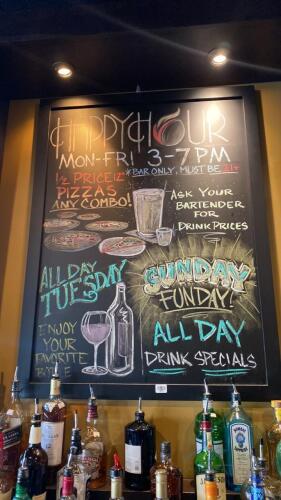 HAPPY HOUR
MON-FRI 3-7PM
*BAR ONLY, MUST BE 21+
1/2 PRICE 12"
PIZZAS
ANY COMBO!
ASK YOUR
BARTENDER
FOR
DRINK PRICES
ALL DAY
TUESDAY
ENJOY
YOUR
FAVORITE
SUNDAY
FUNDAY
ALL DAY
DRINK SPECIALS